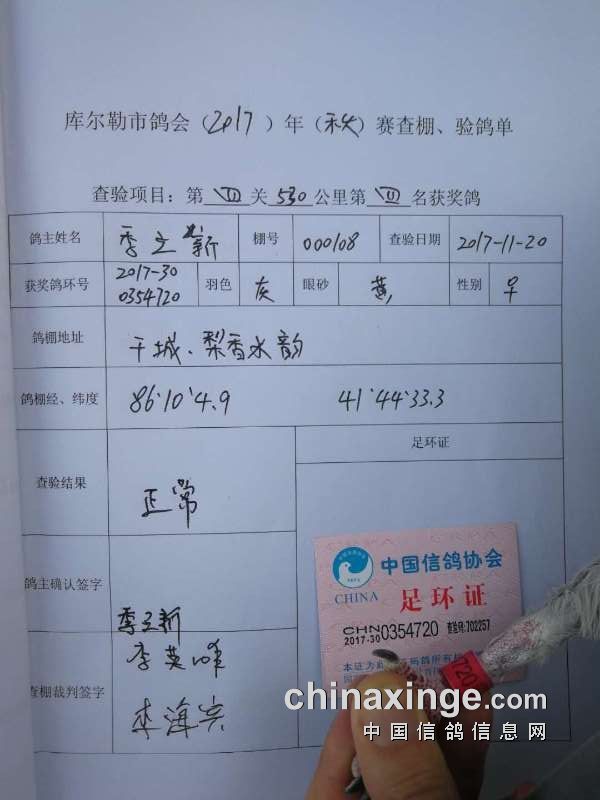 库尔勒市鸽会（2017）年（秋）赛查棚、验鸽单
查验项目：第 四 关 530 公里第 四 名获奖鸽
鸽主姓名 季立新 棚号 000108 查验日期 2017-11-20
获奖鸽环号 2017-30 0354720 羽色 灰 眼砂 黄 性别 ♀
鸽棚地址 干城、梨香水韵
鸽棚经、纬度 86°10'4.9 41°44'33.3
足环证
查验结果 正常
鸽主确认签字 季立新
查棚裁判签字 李英峰
李海宾
中国信鸽协会
CHINA
足环证
CHN
2017-30 0354720 查验号:702257
本证为
chinaxinge.com
中国信鸽信息网